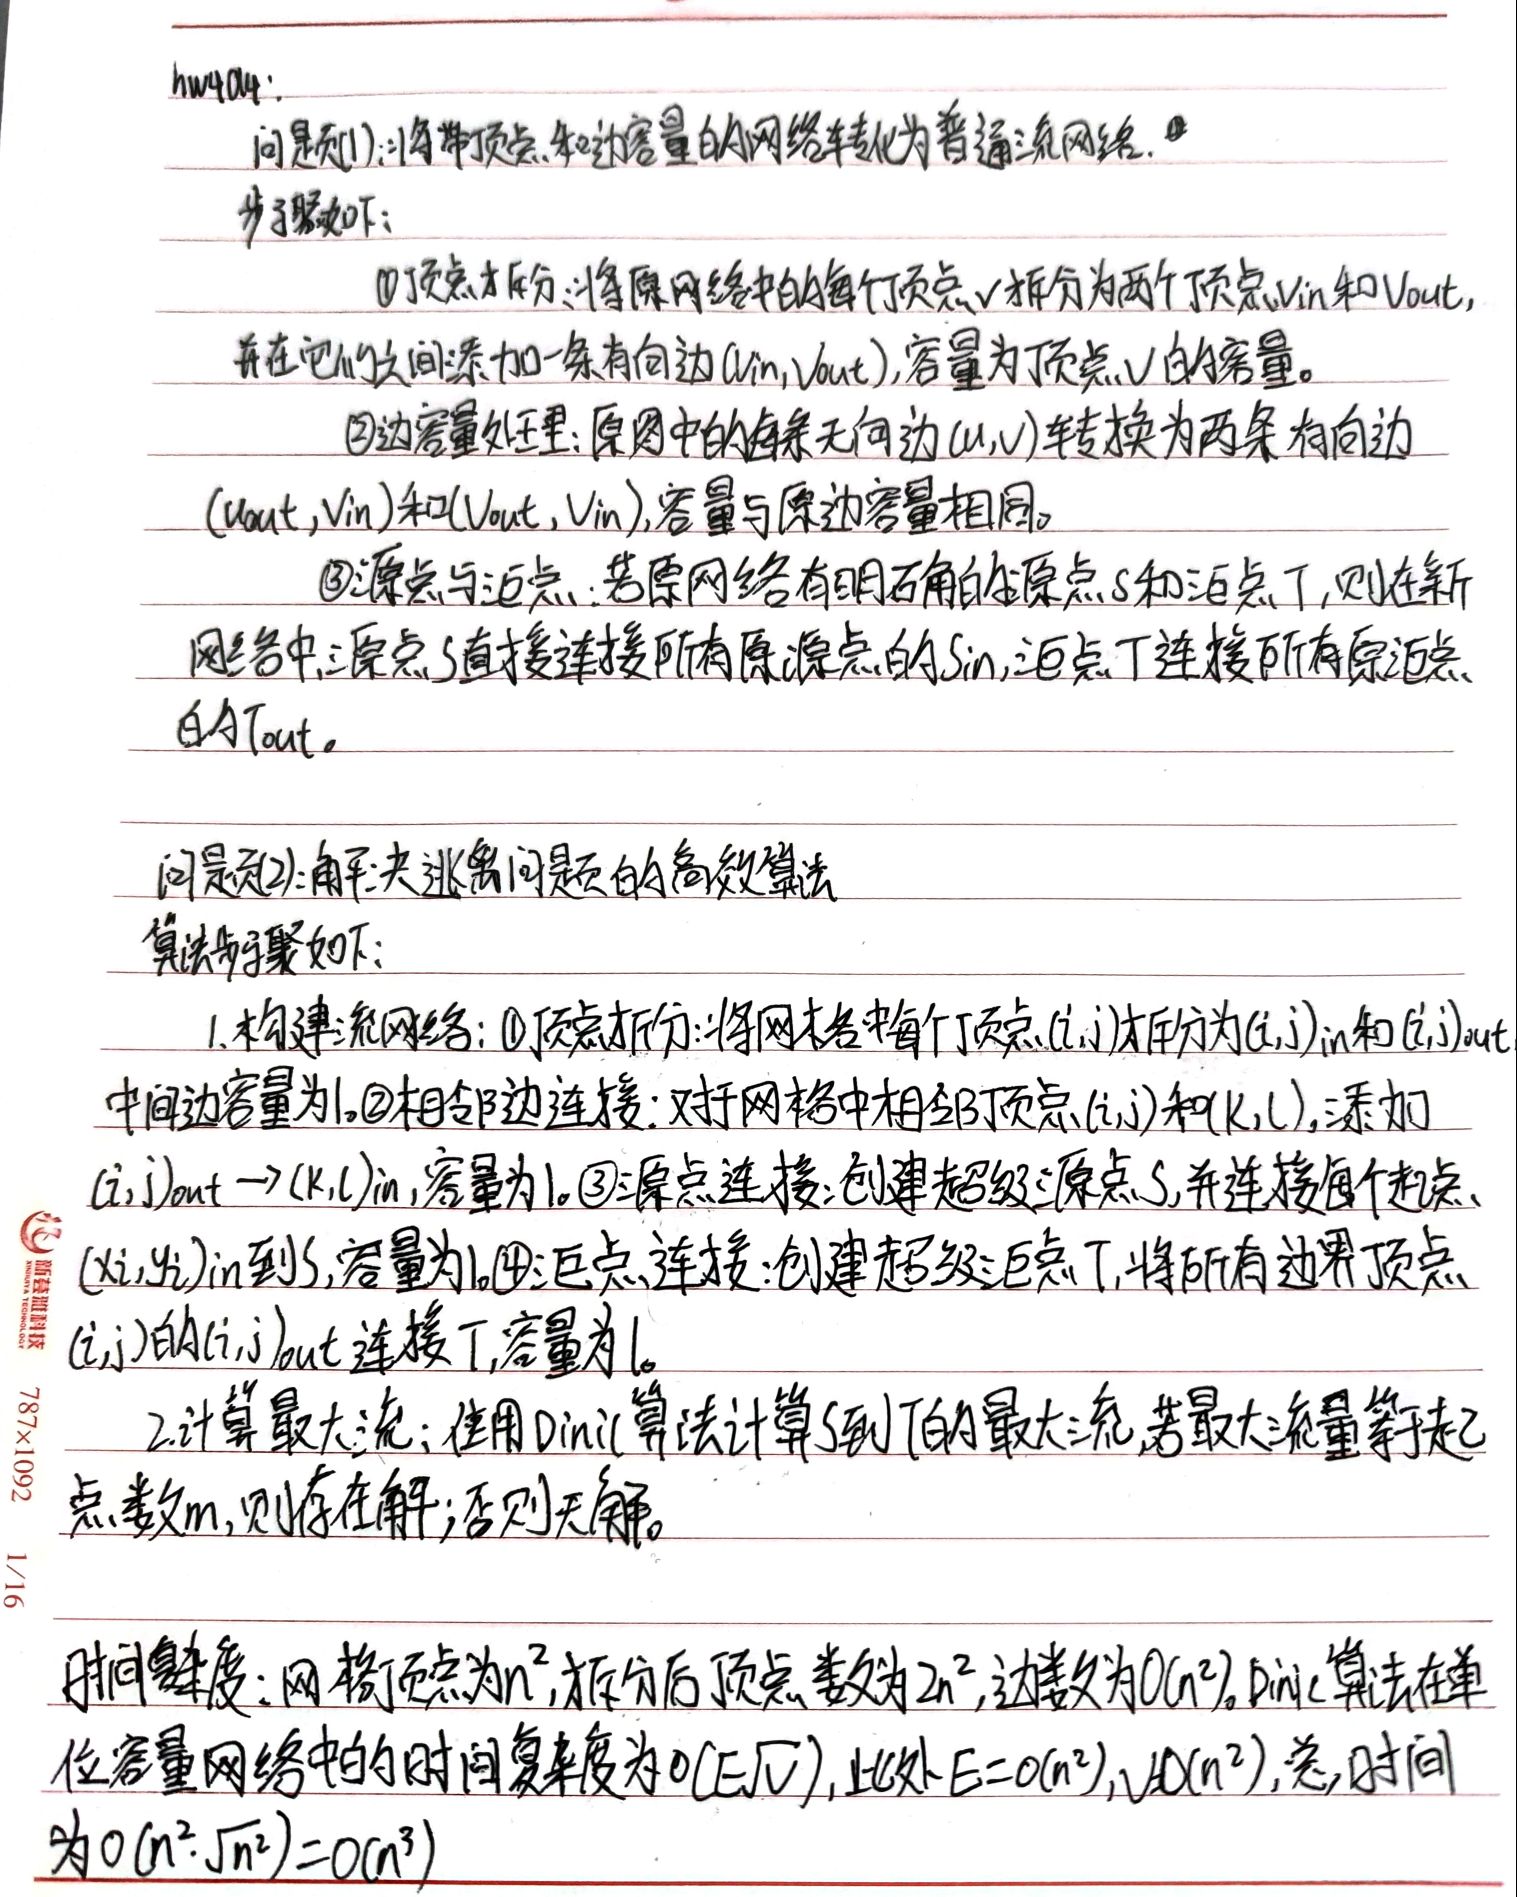 hw4Q4:
问题(1):将带顶点和边容量的网络转化为普通流网络.
步骤如下:
①顶点拆分:将原网络中的每个顶点v拆分为两个顶点Vin和Vout,
并在它们之间添加一条有向边(Vin,Vout),容量为顶点V的容量。
②边容量处理:原图中的每条无向边(u,v)转换为两条有向边
(uout,Vin)和(Vout,Vin),容量与原边容量相同。
③源点与汇点:若原网络有明确的源点S和汇点T,则在新
网络中,源点S直接连接所有原源点的Sin,汇点T连接所有原汇点
的Tout。
问题(2):解决逃离问题的高效算法
算法步骤如下:
1.构建流网络:①顶点拆分:将网格中每个顶点(i,j)拆分为(i,j)in和(i,j)out
中间边容量为1。②相邻边连接:对于网格中相邻顶点(i,j)和(k,l),添加
(i,j)out→(k,l)in,容量为1。③源点连接:创建超级源点S,并连接每个起点
(xi,yi)in到S,容量为1。④汇点连接:创建超级汇点T,将所有边界顶点
(i,j)的(i,j)out连接T,容量为1。
2.计算最大流:使用Dinic算法计算S到T的最大流,若最大流量等于起
点数m,则存在解;否则无解。
时间复杂度:网格顶点为n²,拆分后顶点数为2n²,边数为O(n²)。Dinic算法在单
位容量网络中的时间复杂度为O(E√V),此处E=O(n²),V=O(n²),总时间
为O(n²·√n²)=O(n³)
新鑫雅科技
XINXINYA TECHNOLOGY
787×1092
1/16